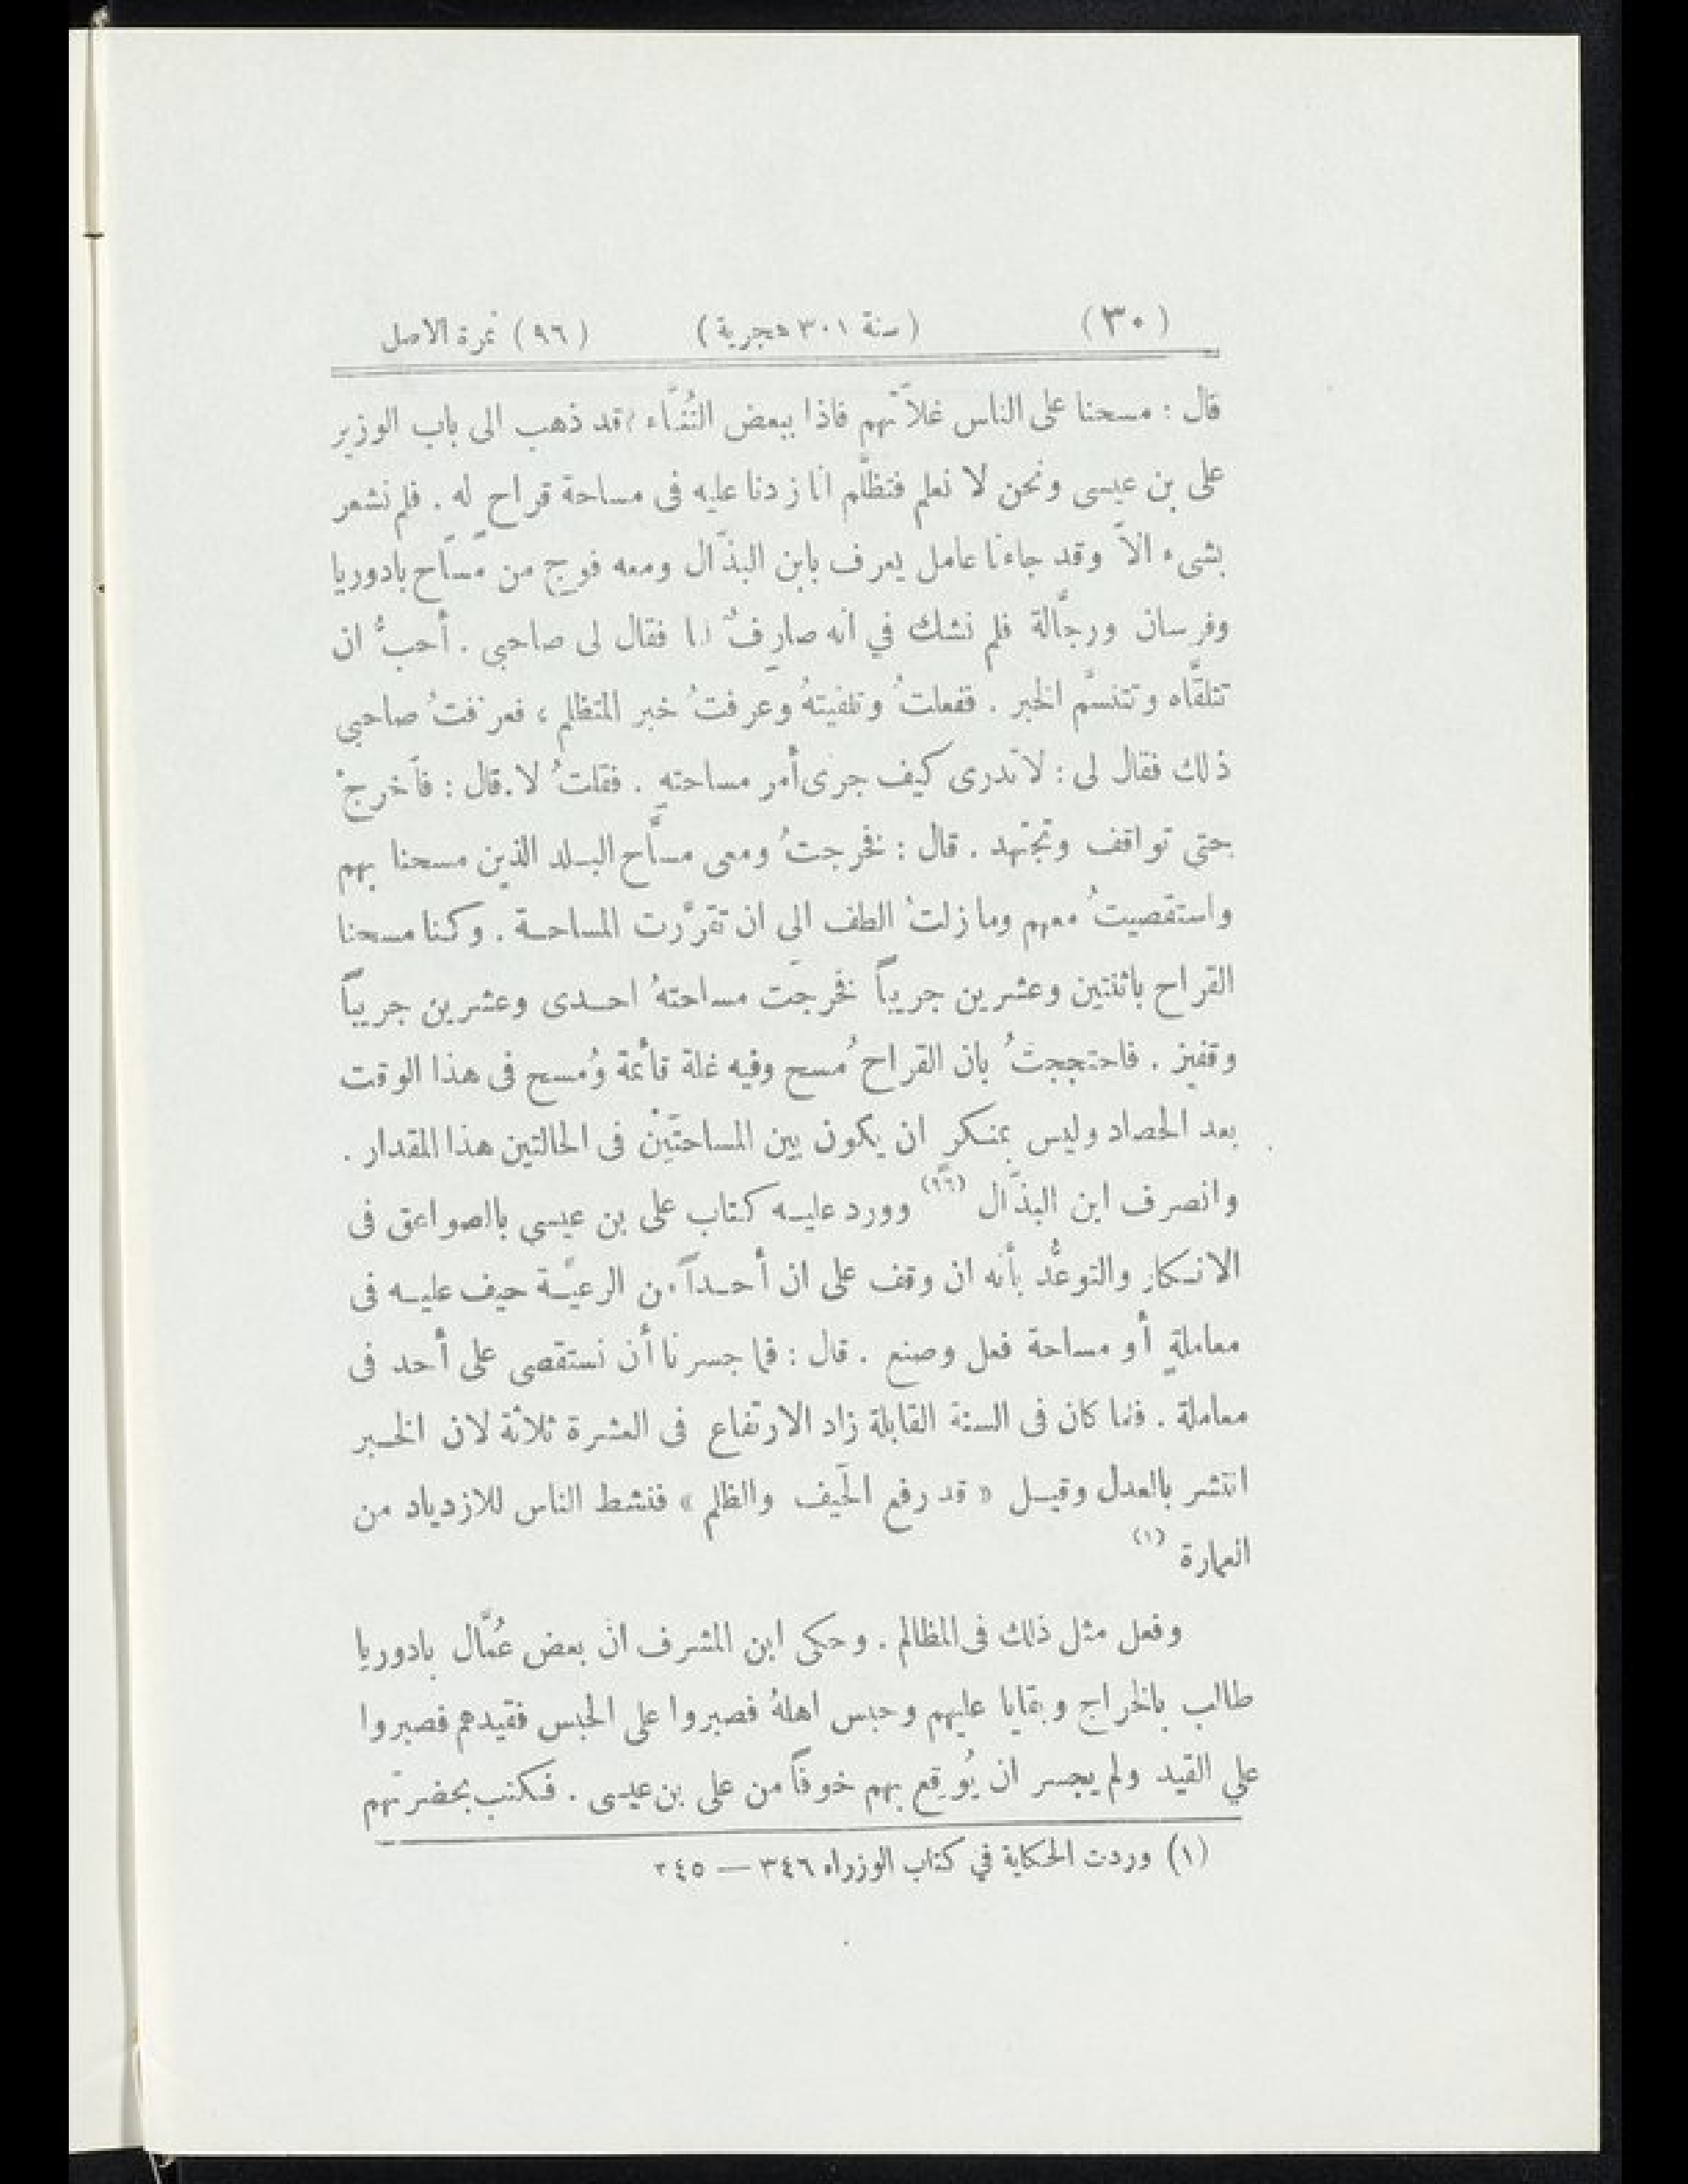 (٣٠) (سنة ٣٠١ هجرية) (٩٦) نمرة الاصل
قال : مسحنا على الناس غلاّتهم فاذا ببعض التُنّاء قد ذهب الى باب الوزير
على بن عيسى ونحن لا نعلم فتظلّم انا زدنا عليه فى مساحة قراح له . فلم نشعر
بشىء الاّ وقد جاءنا عامل يعرف بابن البذّال ومعه فوج من مسّاح بادوريا
وفرسان ورجّالة فلم نشك في انه صارفٌ لنا فقال لى صاحبى . أحبُّ ان
تتلقّاه وتتنسّم الخبر . ففعلتُ وتلقيتهُ وعرفتُ خبر المتظلم ، فعرّفتُ صاحبى
ذلك فقال لى : لا تدرى كيف جرى أمر مساحته . فقلتُ لا . قال : فآخرجْ
حتى تواقف وتجتهد . قال : فخرجتُ ومعى مسّاح البلد الذين مسحنا بهم
واستقصيتُ معهم وما زلتُ الطف الى ان تقرّرت المساحة . وكنا مسحنا
القراح باثنتين وعشرين جريباً فخرجت مساحتهُ احدى وعشرين جريباً
وقفيز . فاحتججتُ بان القراح مُسح وفيه غلة قائمة ومُسح فى هذا الوقت
بعد الحصاد وليس بمنكر ان يكون بين المساحتَيْن فى الحالتين هذا المقدار .
وانصرف ابن البذّال (٩٦) وورد عليه كتاب على بن عيسى بالصواعق فى
الانكار والتوعُّد بأنه ان وقف على ان أحداً من الرعيّة حيف عليه فى
معاملةٍ أو مساحة فعل وصنع . قال : فما جسرنا أن نستقصى على أحد فى
معاملة . فلما كان فى السنة القابلة زاد الارتفاع فى العشرة ثلاثة لان الخبر
انتشر بالعدل وقيل « قد رفع الحَيف والظلم » فنشط الناس للازدياد من
العمارة (١)
وفعل مثل ذلك فى المظالم . وحكى ابن المشرف ان بعض عُمّال بادوريا
طالب بالخراج وبقايا عليهم وحبس اهلهُ فصبروا على الحبس فقيدهم فصبروا
علي القيد ولم يجسر ان يُوقع بهم خوفاً من على بن عيسى . فكتب بحضرتهم
(١) وردت الحكاية في كتاب الوزراء ٣٤٦ — ٣٤٥